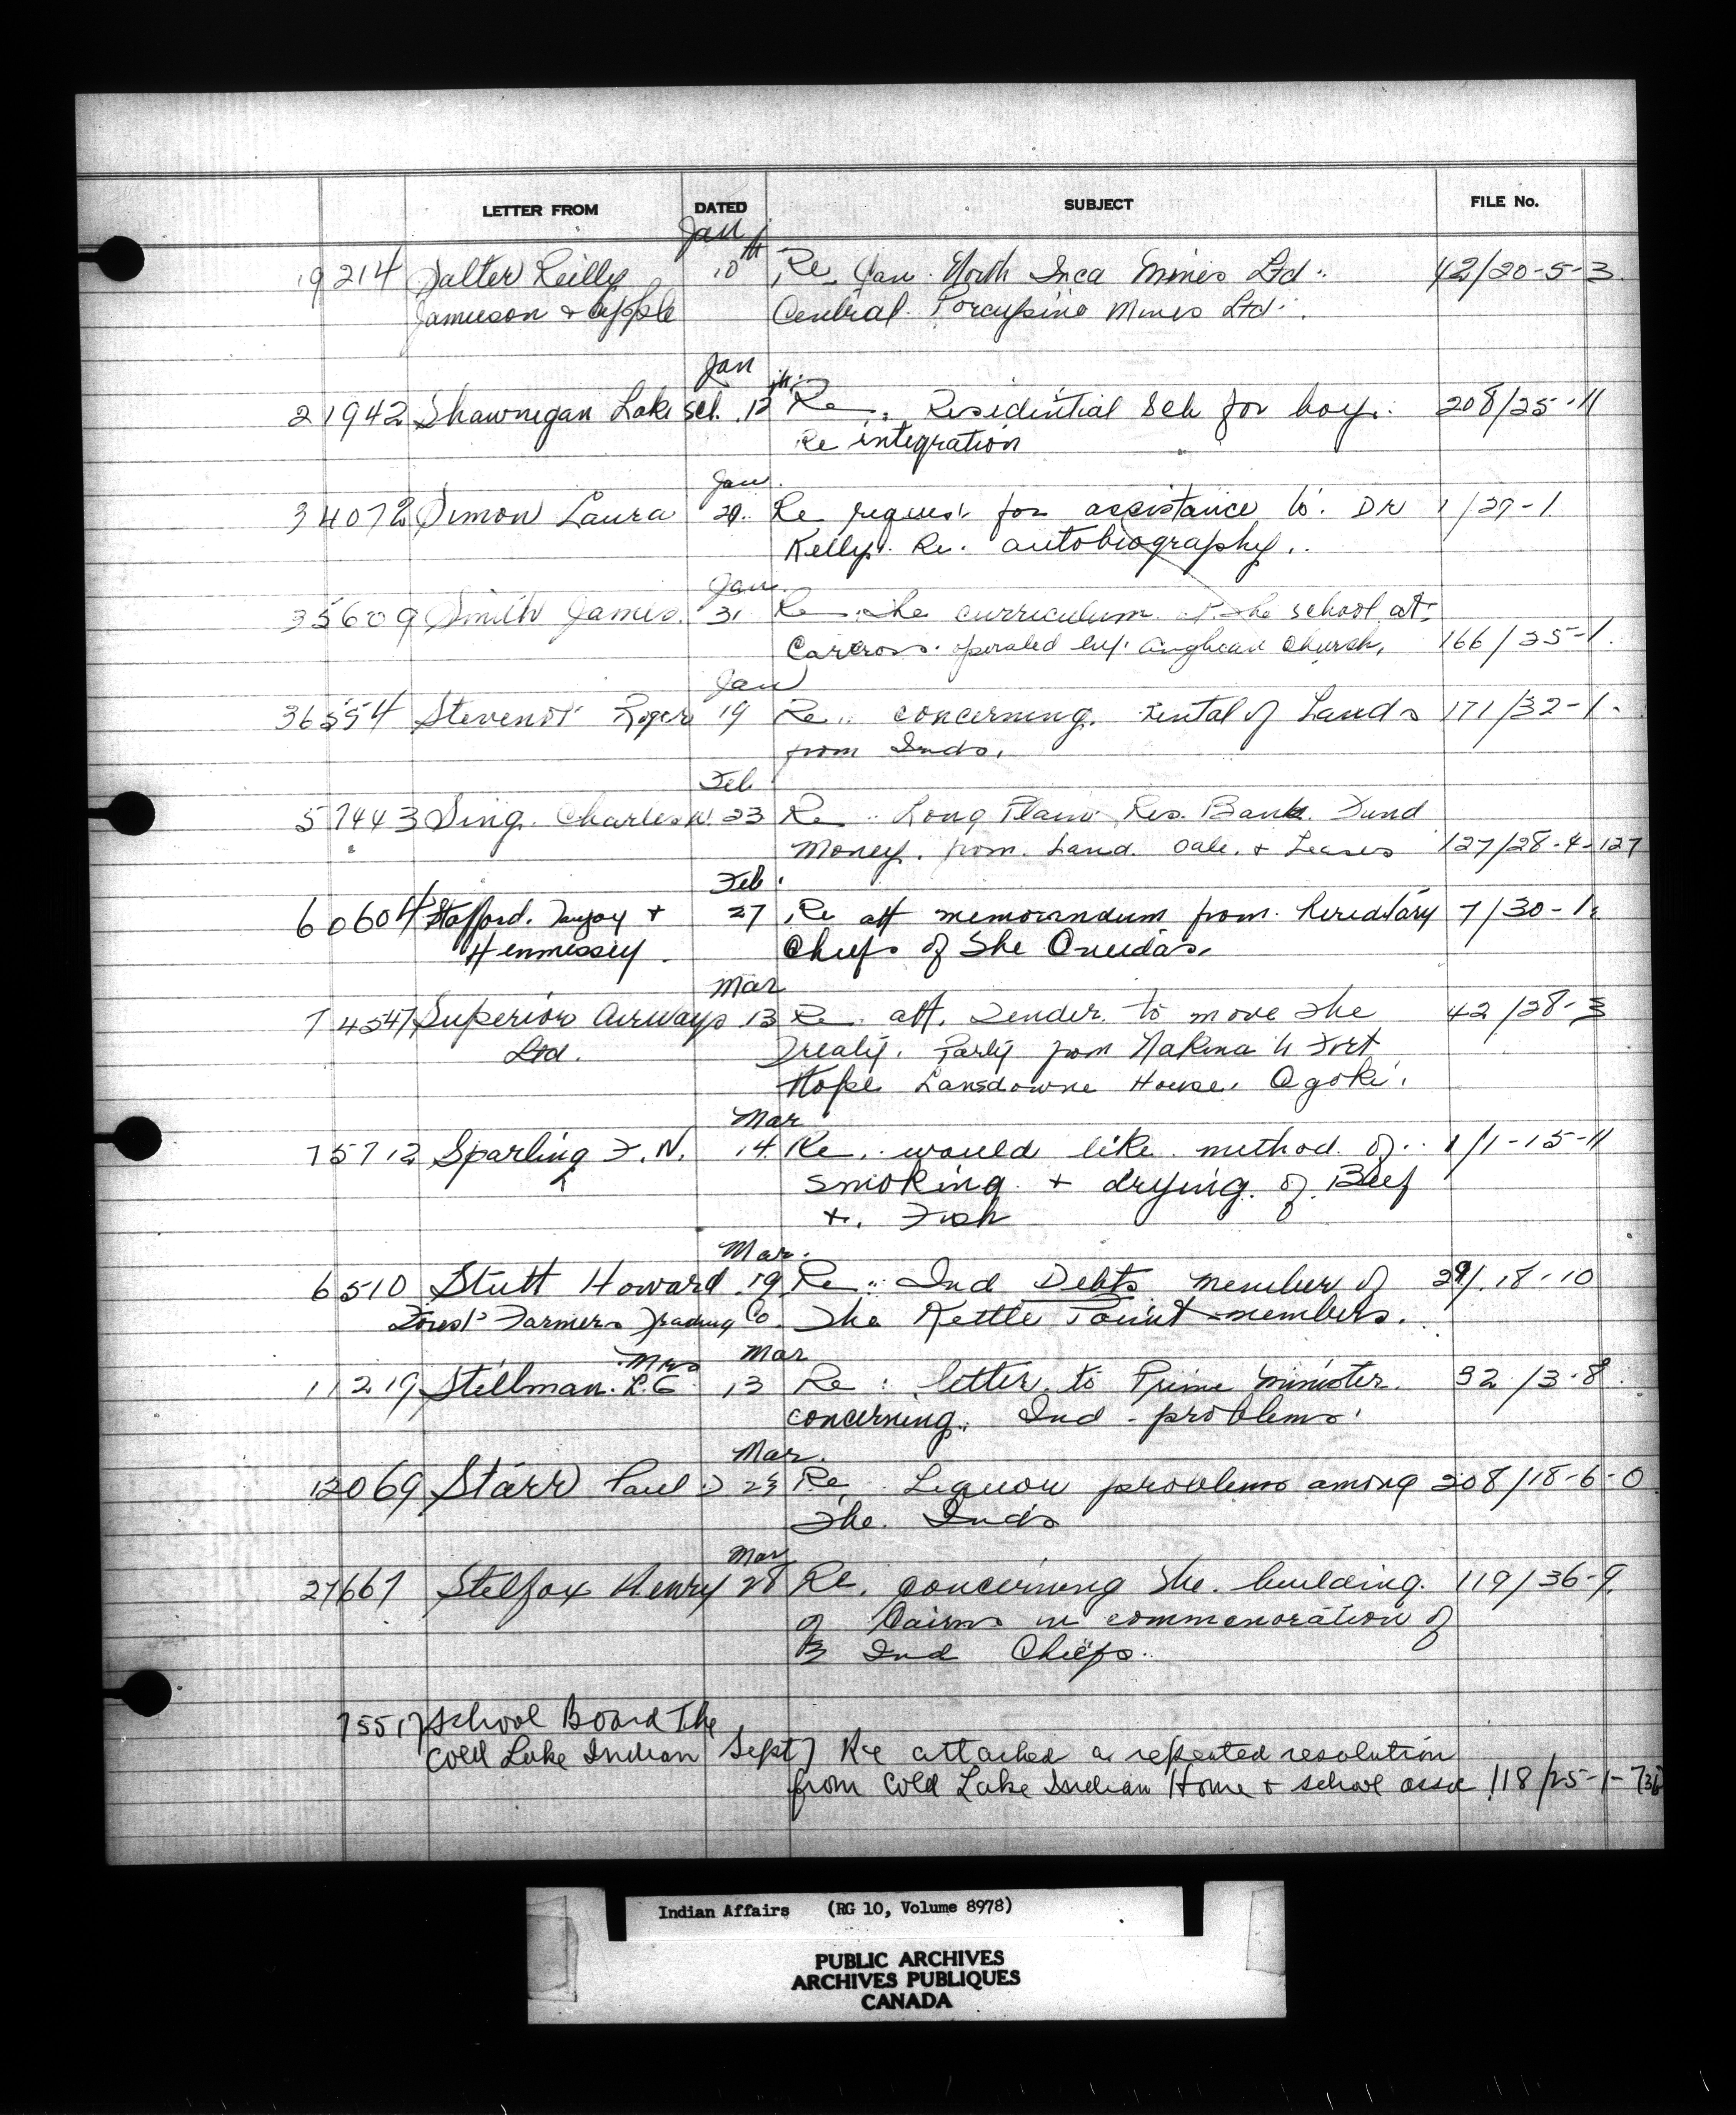 LETTER FROM DATED SUBJECT FILE No.
Jan
19214 Salter Reilly 10th Re Can. North Inca Mines Ltd. 42/20-5-3
Jamieson & Apple Central Porcupine Mines Ltd.
Jan
21942 Shawnegan Lake Sch. 12th Re. Residential Sch for boys. 208/25-11
Re integration
Jan
34072 Simon Laura 29. Re request for assistance to Dr 1/29-1
Kelly. Re. autobiography.
Jan
35609 Smith James. 31 Re the curriculum of the school at
Carcross operated by Anglican Church, 166/25-1.
Jan
36554 Stevenot Roger 19 Re concerning rental of Lands 171/32-1.
from Inds.
Feb
57443 Sing. Charles W. 23 Re Long Plain Res. Bank. Fund
Money. from Land Sale. & Leases 127/28-4-127
Feb.
60604 Stafford. & 27 Re att memourndum from hereditary 7/30-1.
Hennessey. Chiefs of the Oneidas.
Mar
74547 Superior Airways 13 Re. att. Tender to move the 42/28-3
Ltd. Treaty. Party from Nakina to Fort
Hope Lansdowne House, Ogoki.
Mar
75712 Sparling F. N. 14 Re. would like method of 1/1-15-11
smoking & drying of Beef
&. Fish
Mar.
6510 Stutt Howard 19 Re Ind Debts member of 29/18-10
Forest Farmers Trading Co. The Kettle Point members.
Mrs Mar
11219 Stillman. L.E. 13 Re: letter to Prime Minister. 92/3-8.
concerning Ind-problems.
Mar.
12069 Starr Paul D 23 Re Liquor problems among 208/18-6-0
The Inds
Mar
27667 Stelfox Henry 28 Re. concerning the building. 119/36-9.
of Cairns in commenoration of
3 Ind Chiefs.
75517 School Board The
Cold Lake Indian Sept 7 Re attached a repeated resolution
from Cold Lake Indian Home & school assoc 118/25-1-736
Indian Affairs (RG 10, Volume 8978)
PUBLIC ARCHIVES
ARCHIVES PUBLIQUES
CANADA